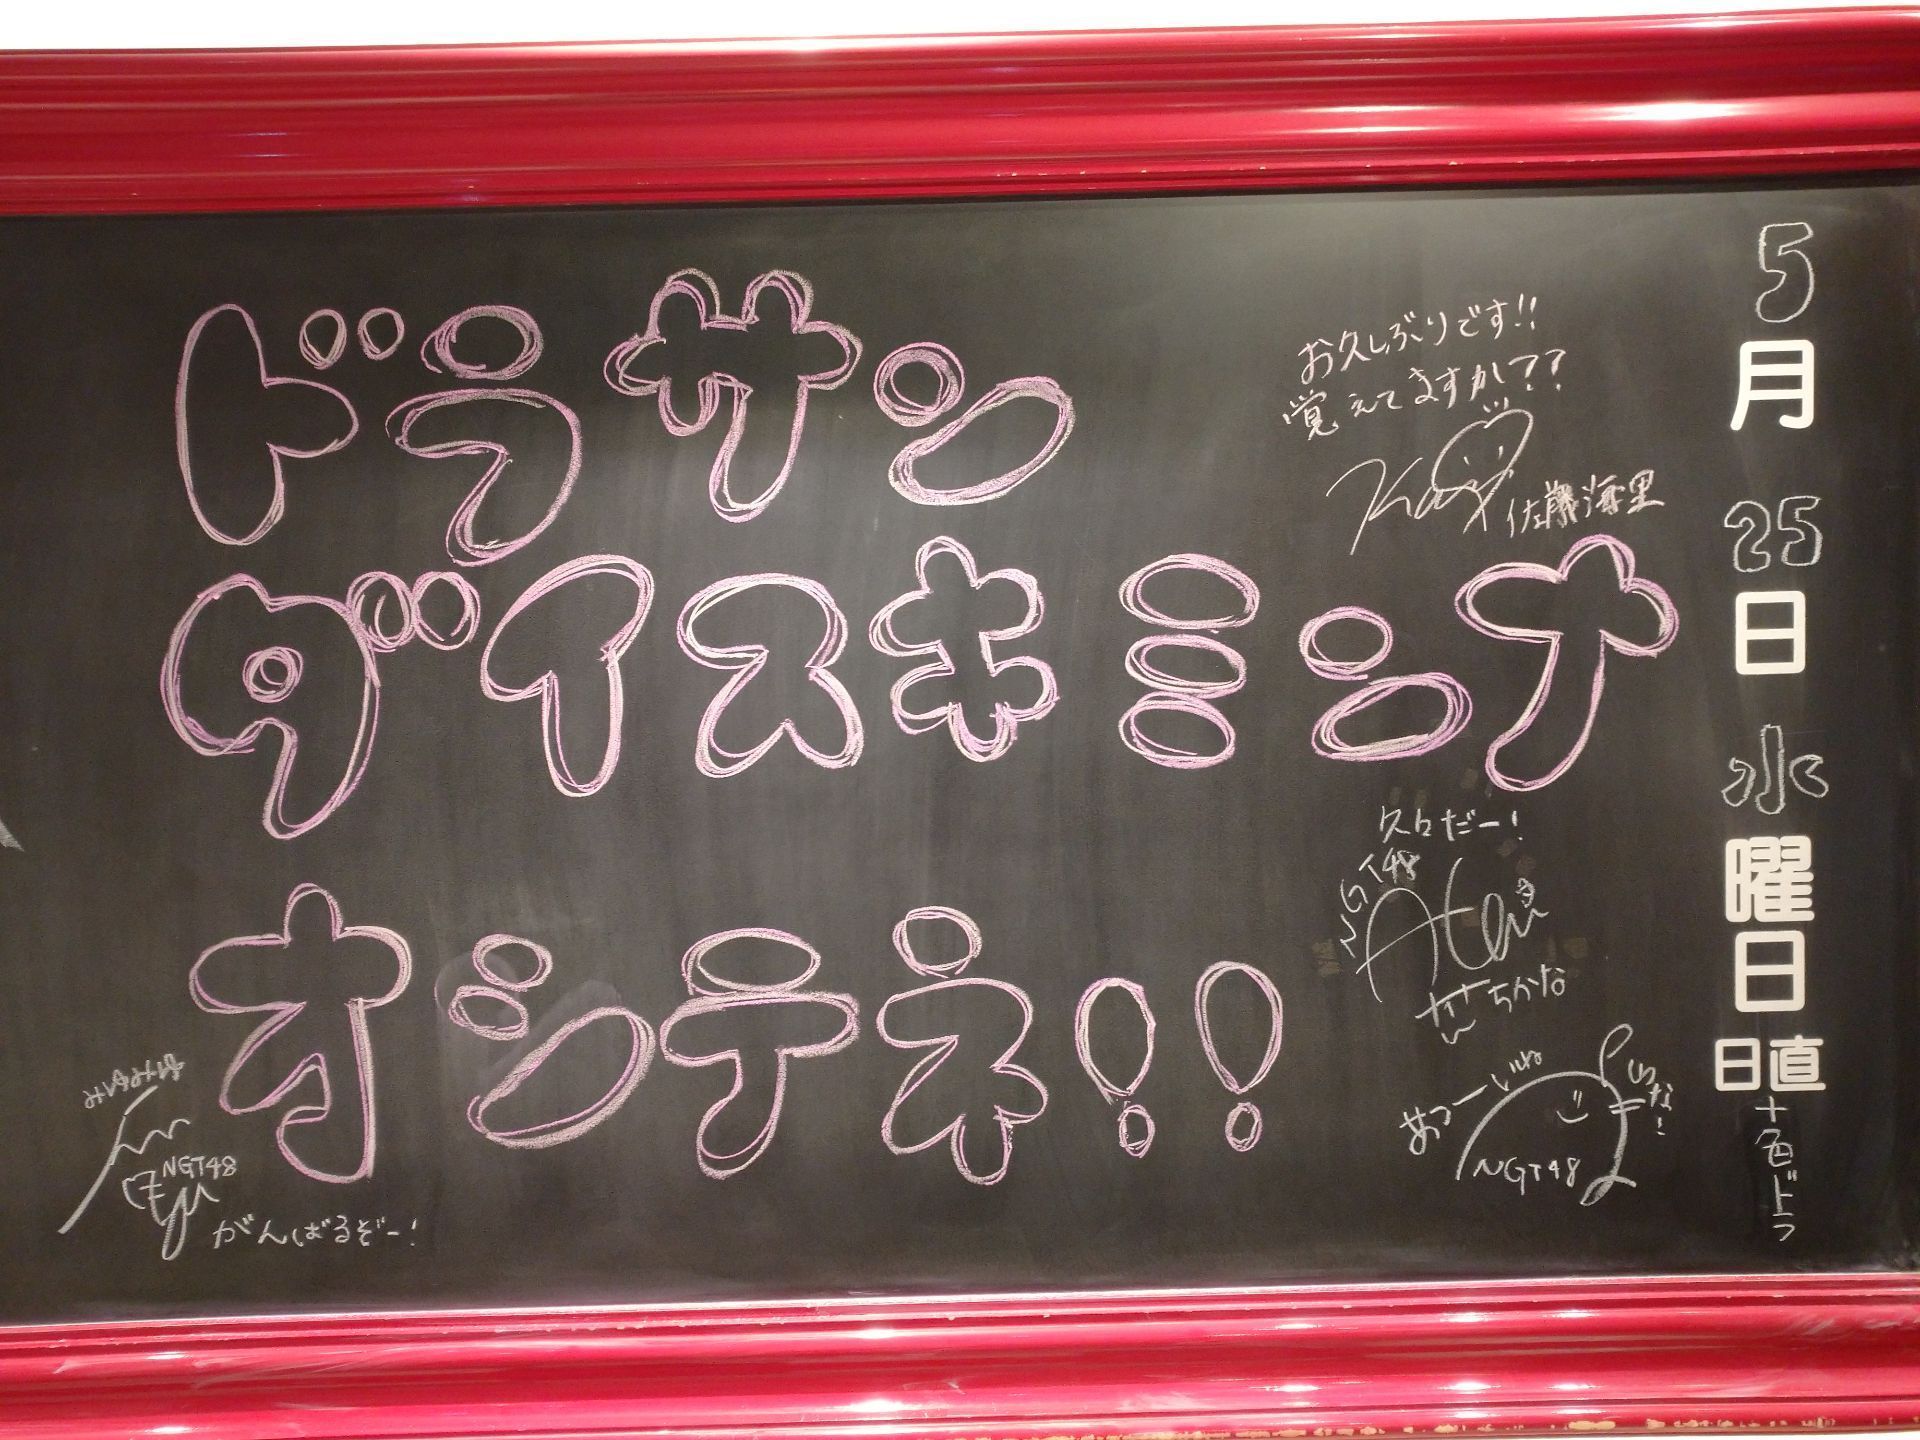 5月25日水曜日
日直
十色ピよっ
ドラサン
ダイスキミンナ
オシテネ!!
お久しぶりです!!
覚えてますか??
佐藤海里
久々だー!
NGT48
ちかな
あつーいね
NGT48
NGT48
がんばるぞー!